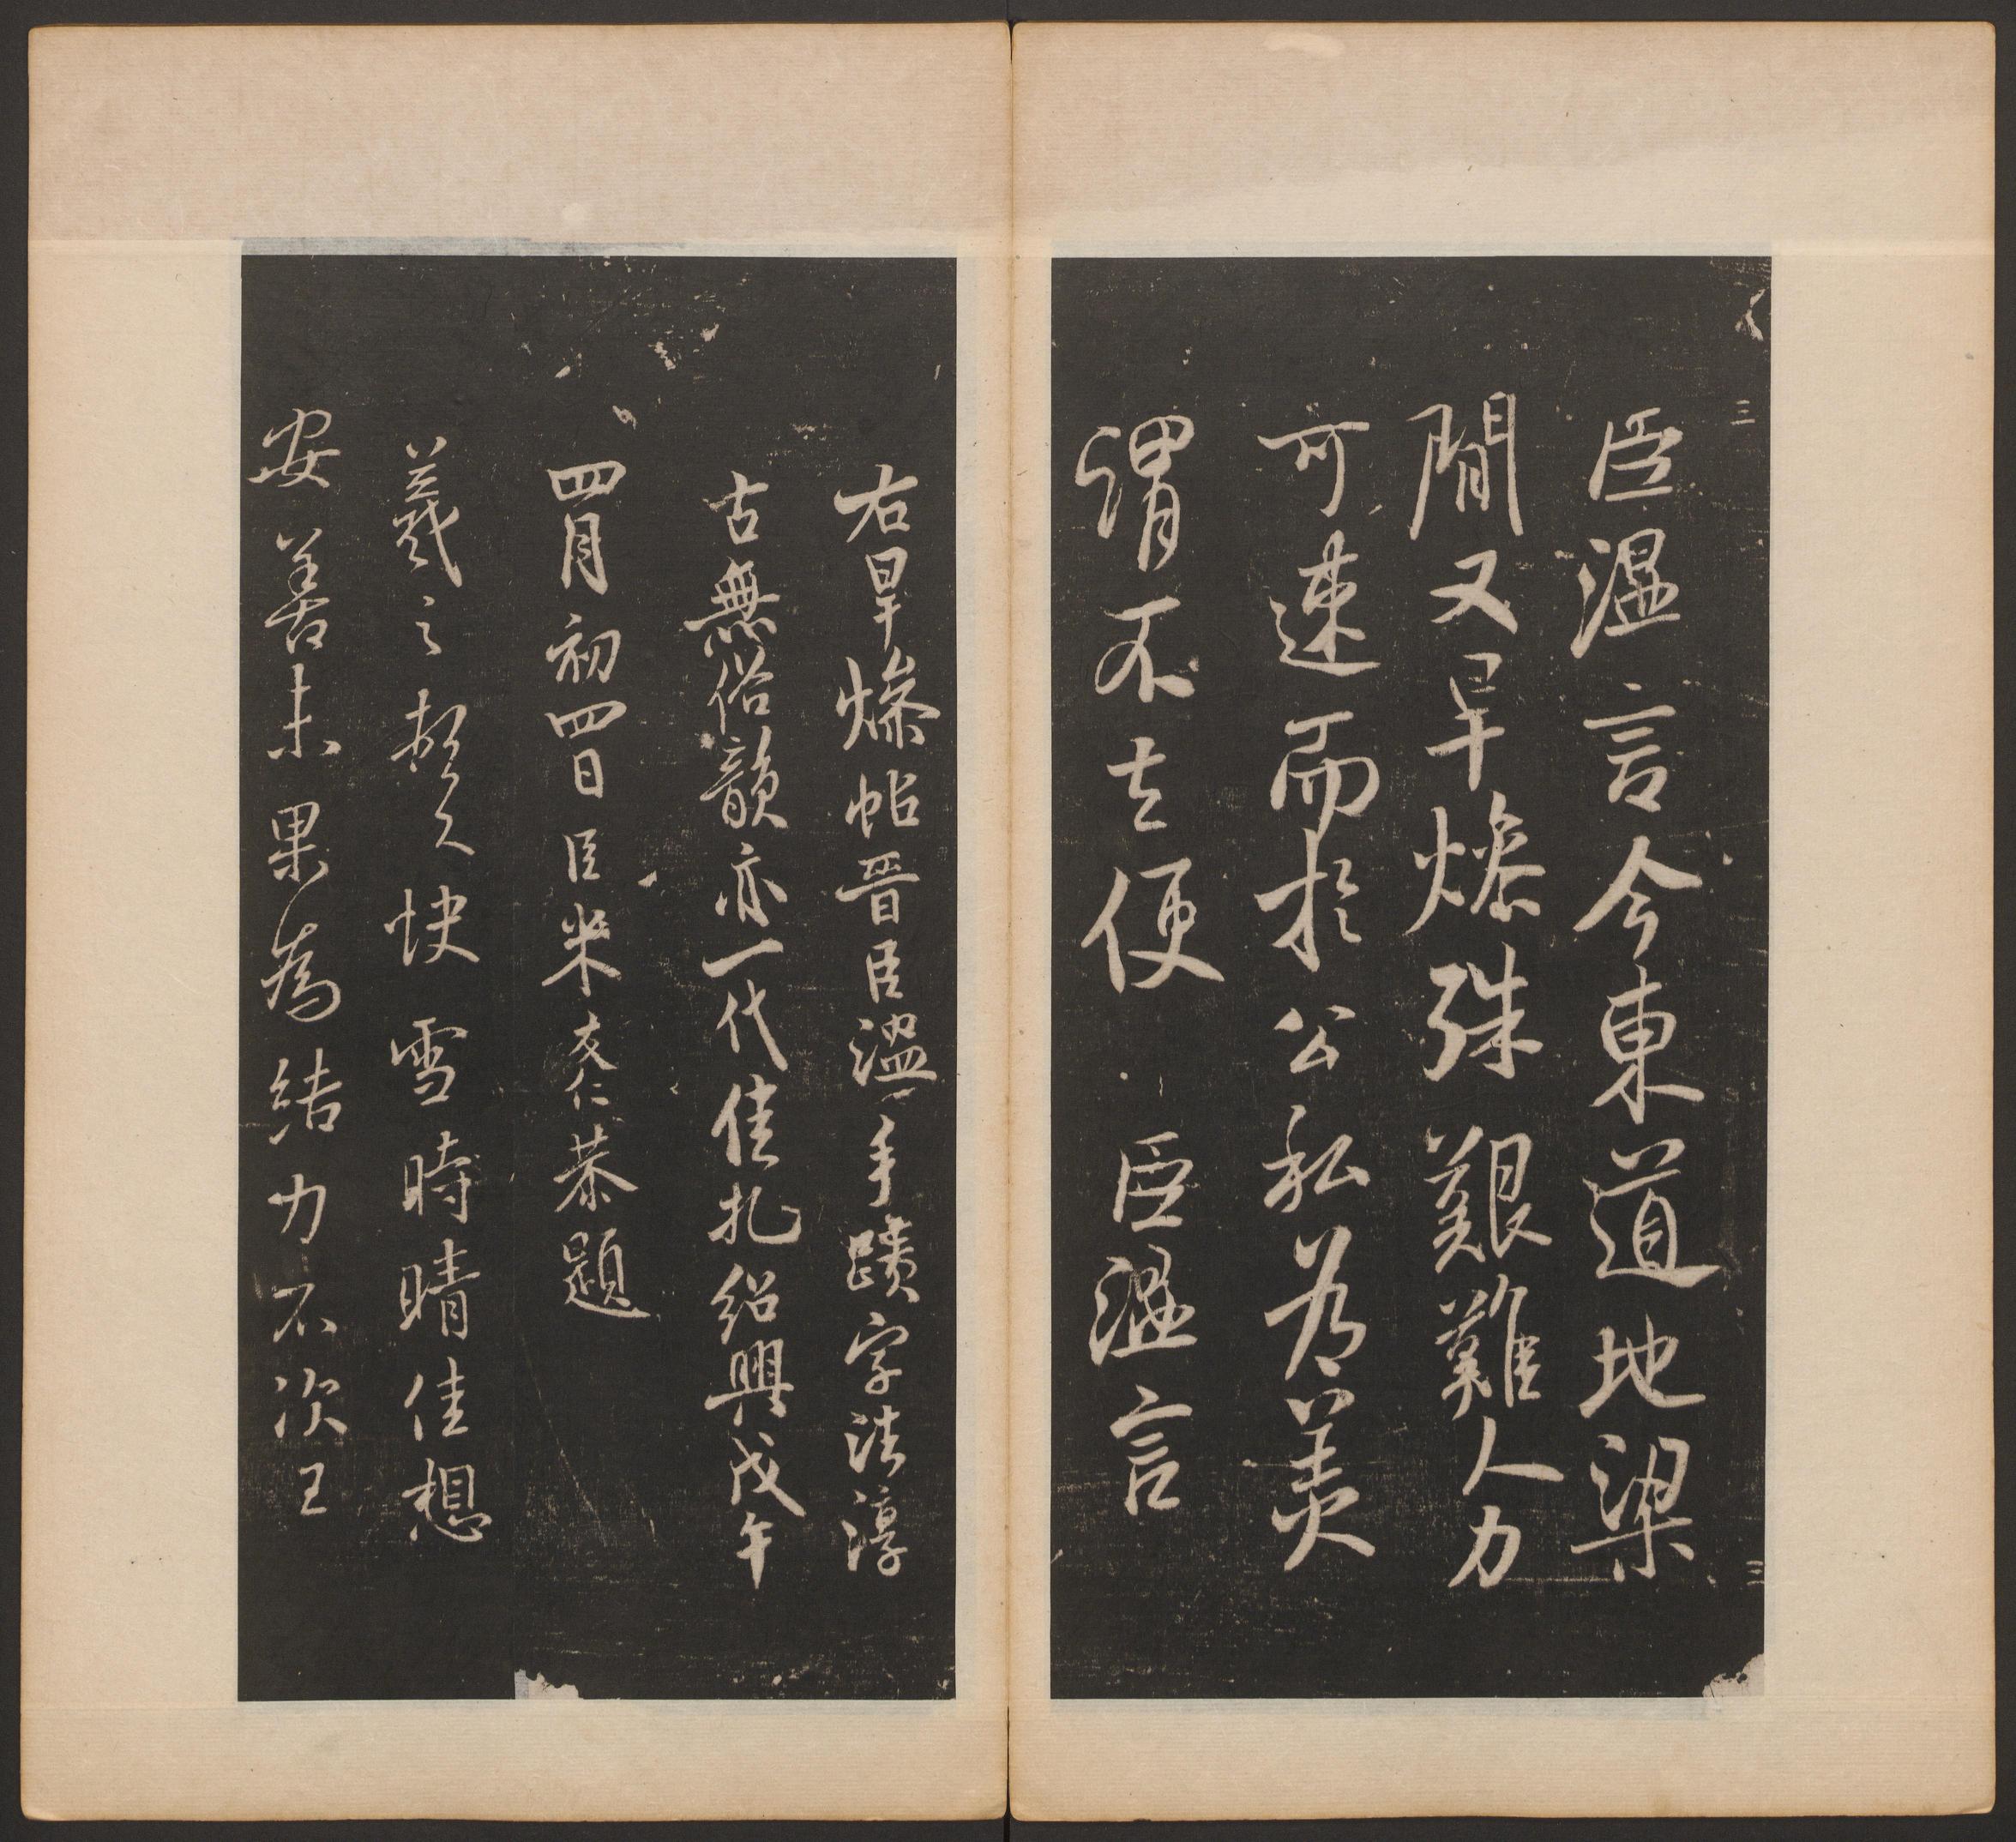 三
臣溫言今東道地梁
間又旱燥殊艱難人力
可速而於公私為美
謂不去便 臣溫言
三
右旱燥帖晉臣溫手蹟字法淳
古無俗韻亦一代佳札紹興戊午
四月初四日臣米友仁恭題
羲之頓久快雪時晴佳想
安善未果為結力不次王